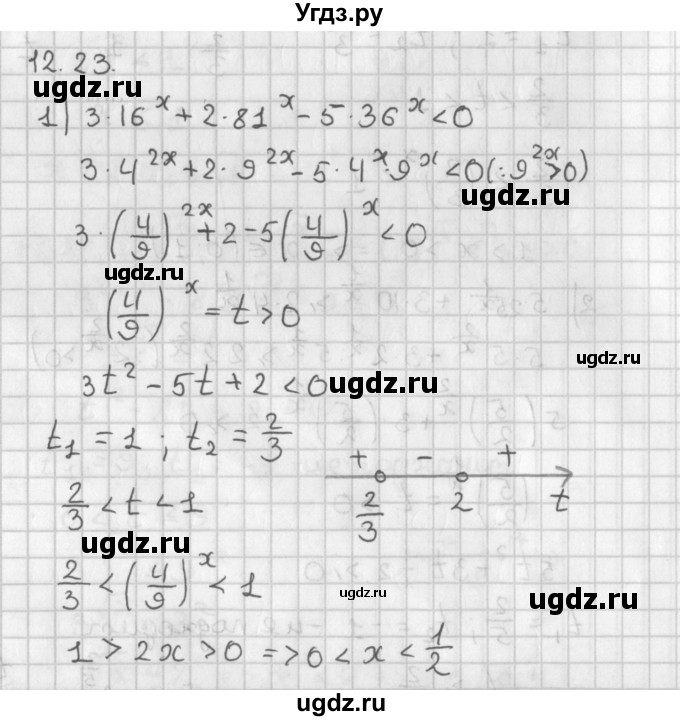 Угдз.ру
12.23.
ugdz.ru
1) 3·16^x + 2·81^x - 5·36^x < 0
ugdz.ru
3·4^{2x} + 2·9^{2x} - 5·4^x·9^x < 0 (:9^{2x} > 0)
ugdz.ru
3·(4/9)^{2x} + 2 - 5(4/9)^x < 0
ugdz.ru
(4/9)^x = t > 0
ugdz.ru
3t² - 5t + 2 < 0
ugdz.ru
t₁ = 1 ; t₂ = 2/3
+ - +
2/3 2 t
2/3 < t < 1
ugdz.ru
2/3 < (4/9)^x < 1
ugdz.ru
1 > 2x > 0 => 0 < x < 1/2
ugdz.ru
ugdz.ru